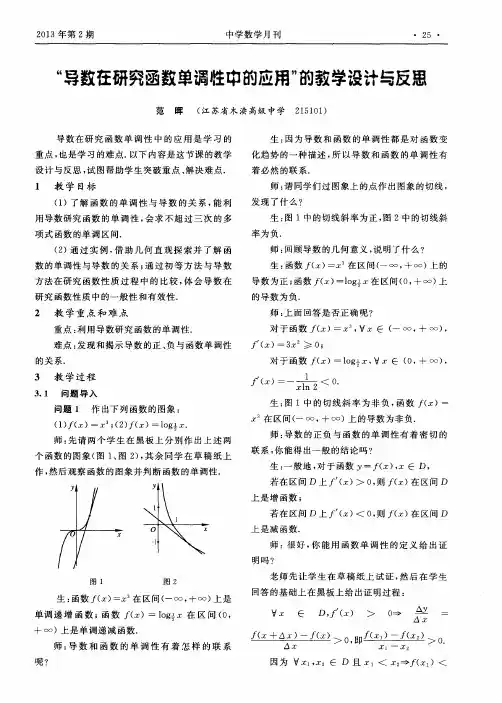 2013 年第 2 期 中学数学月刊 · 25 ·
“导数在研究函数单调性中的应用”的教学设计与反思
范 晖 (江苏省木渎高级中学 215101)
导数在研究函数单调性中的应用是学习的
重点,也是学习的难点.以下内容是这节课的教学
设计与反思,试图帮助学生突破重点、解决难点.
1 教学目标
(1)了解函数的单调性与导数的关系,能利
用导数研究函数的单调性,会求不超过三次的多
项式函数的单调区间.
(2)通过实例,借助几何直观探索并了解函
数的单调性与导数的关系;通过初等方法与导数
方法在研究函数性质过程中的比较,体会导数在
研究函数性质中的一般性和有效性.
2 教学重点和难点
重点:利用导数研究函数的单调性.
难点:发现和揭示导数的正、负与函数单调性
的关系.
3 教学过程
3.1 问题导入
问题 1 作出下列函数的图象:
(1)f(x)=x³;(2)f(x)=log½x.
师:先请两个学生在黑板上分别作出上述两
个函数的图象(图 1、图 2),其余同学在草稿纸上
作,然后观察函数的图象并判断函数的单调性.
y O x
y 1 O 1 x -1
图 1 图 2
生:函数 f(x)=x³ 在区间(-∞,+∞)上是
单调递增函数;函数 f(x)=log½x 在区间(0,
+∞)上是单调递减函数.
师:导数和函数的单调性有着怎样的联系
呢?
生:因为导数和函数的单调性都是对函数变
化趋势的一种描述,所以导数和函数的单调性有
着必然的联系.
师:请同学们过图象上的点作出图象的切线,
发现了什么?
生:图 1 中的切线斜率为正,图 2 中的切线斜
率为负.
师:回顾导数的几何意义,说明了什么?
生:函数 f(x)=x³ 在区间(-∞,+∞)上的
导数为正;函数 f(x)=log½x 在区间(0,+∞)上
的导数为负.
师:上面回答是否正确呢?
对于函数 f(x)=x³,∀x ∈ (-∞,+∞),
f′(x)=3x² ⩾ 0;
对于函数 f(x)=log½x,∀x ∈ (0,+∞),
f′(x)=-1/(xln 2)<0.
生:图 1 中的切线斜率为非负,函数 f(x)=
x³ 在区间(-∞,+∞)上的导数为非负.
师:导数的正负与函数的单调性有着密切的
联系,你能得出一般的结论吗?
生:一般地,对于函数 y=f(x),x∈D,
若在区间 D 上 f′(x)>0,则 f(x)在区间 D
上是增函数;
若在区间 D 上 f′(x)<0,则 f(x)在区间 D
上是减函数.
师: 很好,你能用函数单调性的定义给出证
明吗?
老师先让学生在草稿纸上试证,然后在学生
回答的基础上在黑板上给出证明过程:
∀x ∈ D,f′(x) > 0⇒ Δy/Δx =
(f(x+Δx)-f(x))/Δx>0,即(f(x₁)-f(x₂))/(x₁-x₂)>0.
因为 ∀x₁,x₂ ∈ D 且 x₁ < x₂⇒f(x₁) <